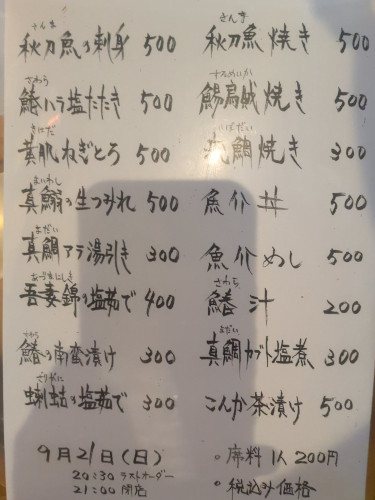 さんま
秋刀魚の刺身 500
さわら
鰆ハラ塩たたき 500
きはだ
黄肌ねぎとろ 500
まいわし
真鰯の生つみれ 500
まだい
真鯛アラ湯引き 300
あづまにしき
吾妻錦の塩茹で 400
さわら
鰆の南蛮漬け 300
ざりがに
蝲蛄の塩茹で 300
9月21日(日)
20:30 ラストオーダー
21:00 閉店
さんま
秋刀魚焼き 500
するめいか
鯣烏賊焼き 500
いぼだい
鯛焼き 300
魚介丼 500
魚介めし 500
さわら
鰆汁 200
まだい
真鯛カブト塩煮 300
こんか茶漬け 500
・席料 1人200円
・税込み価格